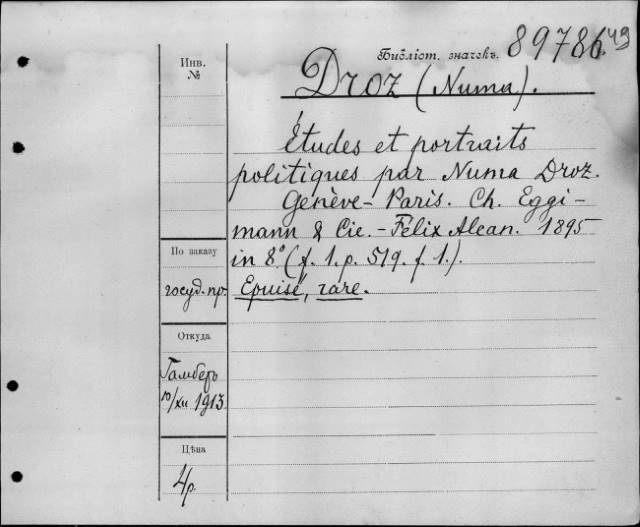 Библіот. значекъ. 89786 49
Инв. №
Droz (Numa).
Études et portraits
politiques par Numa Droz.
Genève - Paris. Ch. Eggi-
mann & Cie. - Félix Alcan. 1895
in 8° (f. 1. p. 519. f. 1.).
По заказу
госуд. пр.
Epuisé, rare.
Откуда
Гамберъ
10/XII 1913
Цѣна
4р.